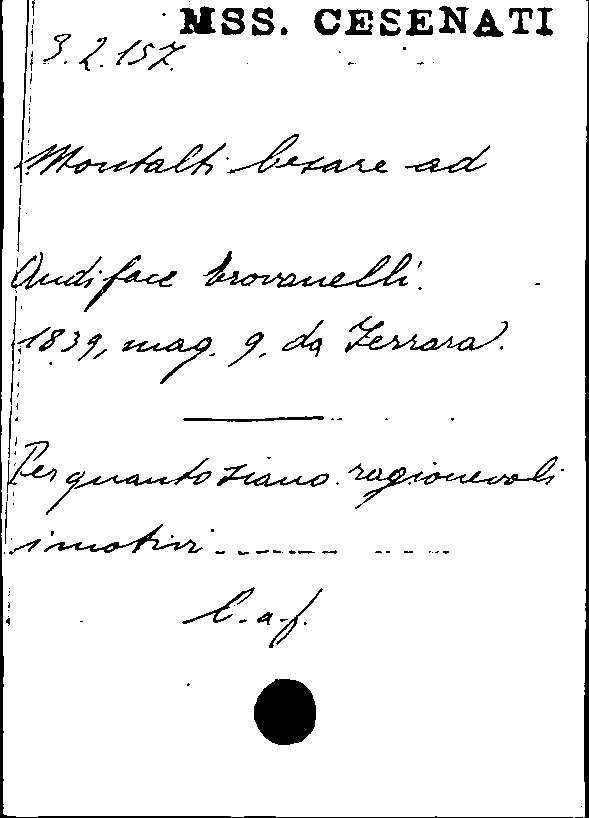 MSS. CESENATI
3.2.157.
Montalti Cesare ad
Audiface Trovanelli.
1839, mag. 9, da Ferrara.
Per quanto siano ragionevoli
i motivi
C. a. f.